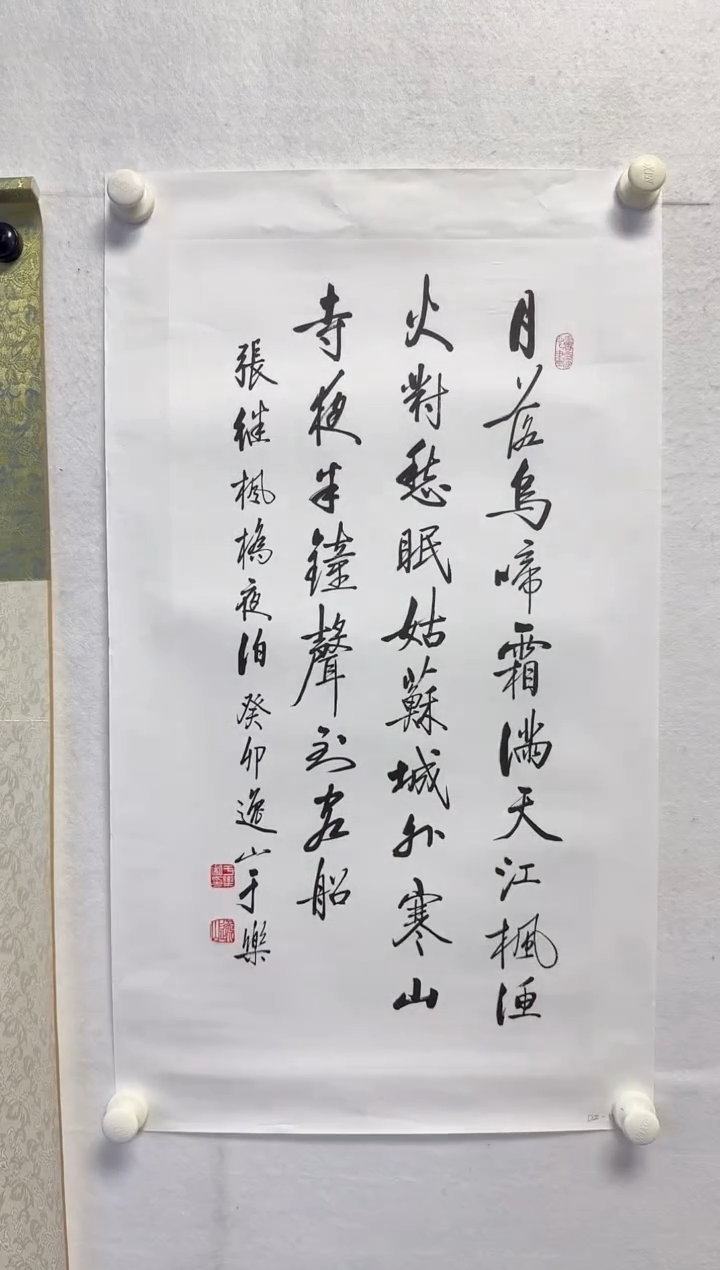 月落烏啼霜滿天江楓渔
火對愁眠姑蘇城外寒山
寺夜半鐘聲到客船
張继楓橋夜泊癸卯逸山于樂